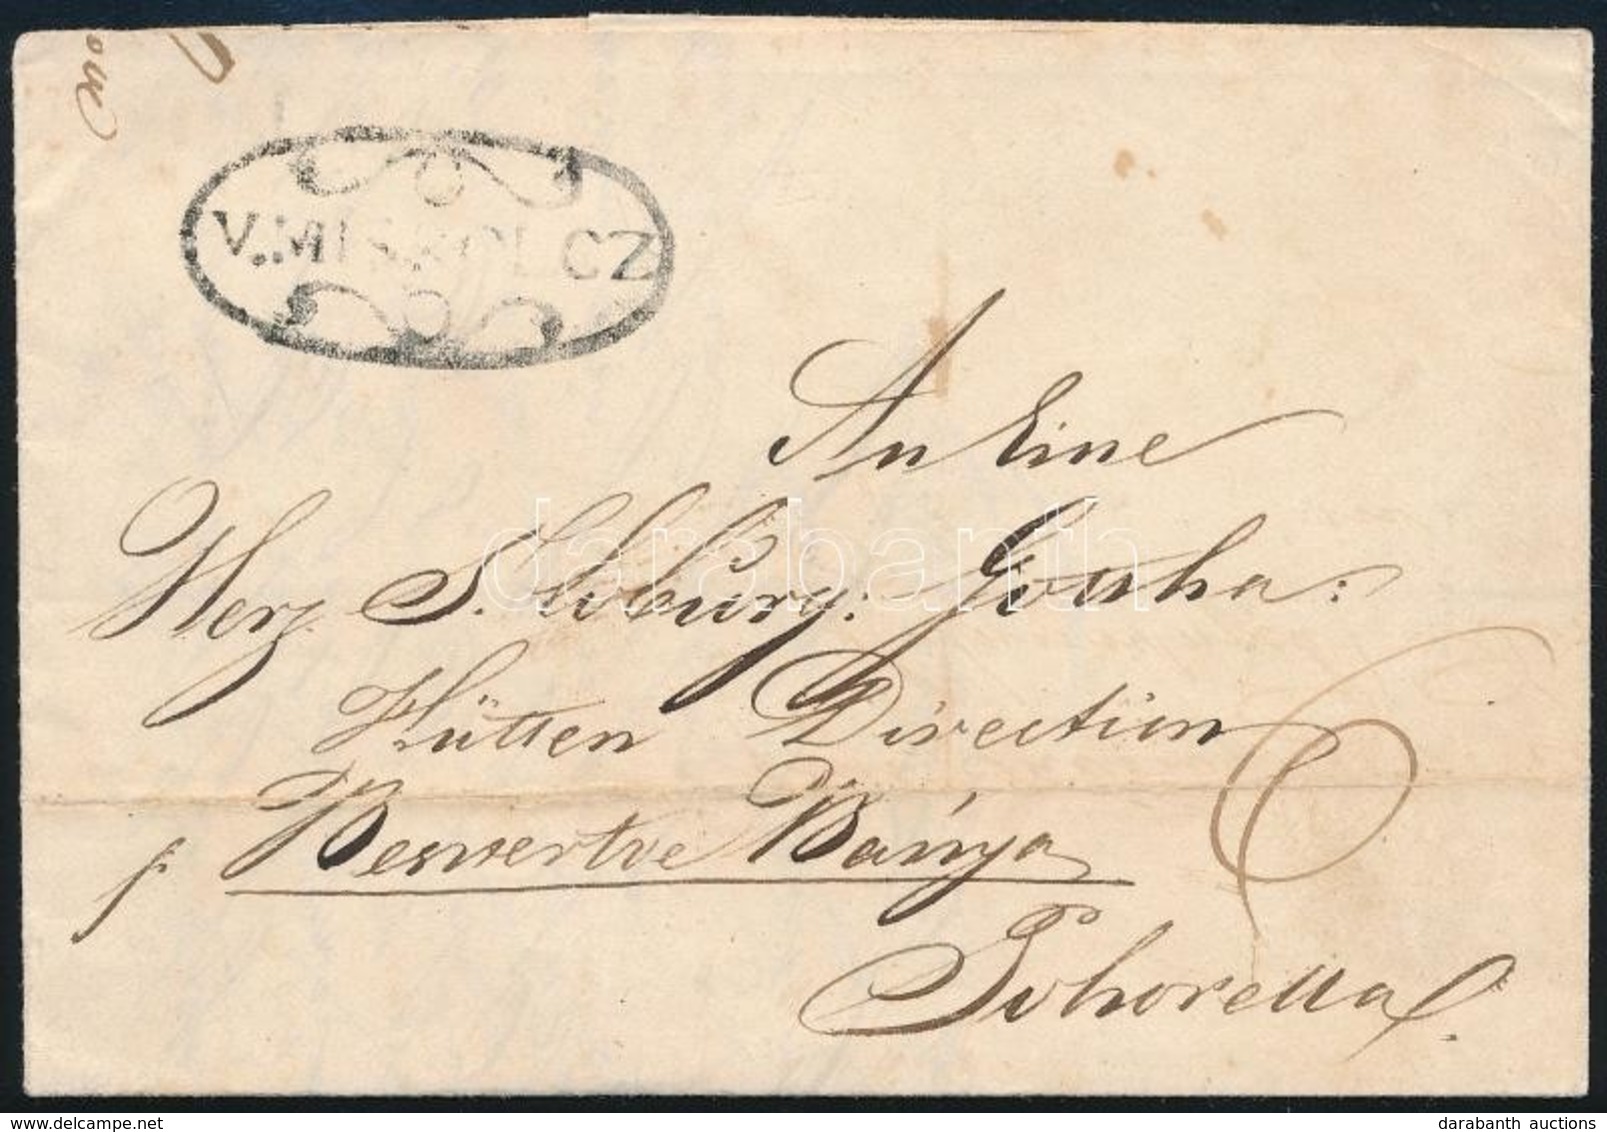 V. MISKOLCZ
An Eine
Herz. S. Coburg: Gottha:
Hütten Direction
p Beswertve Bánya
Pohorella
6
darabanth
delcampe.net
darabanth auctions